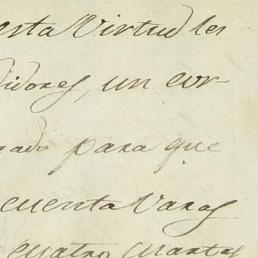 esta Virtud les
idores, un cor-
rado para que
cuenta Varas
cuatro cuartas